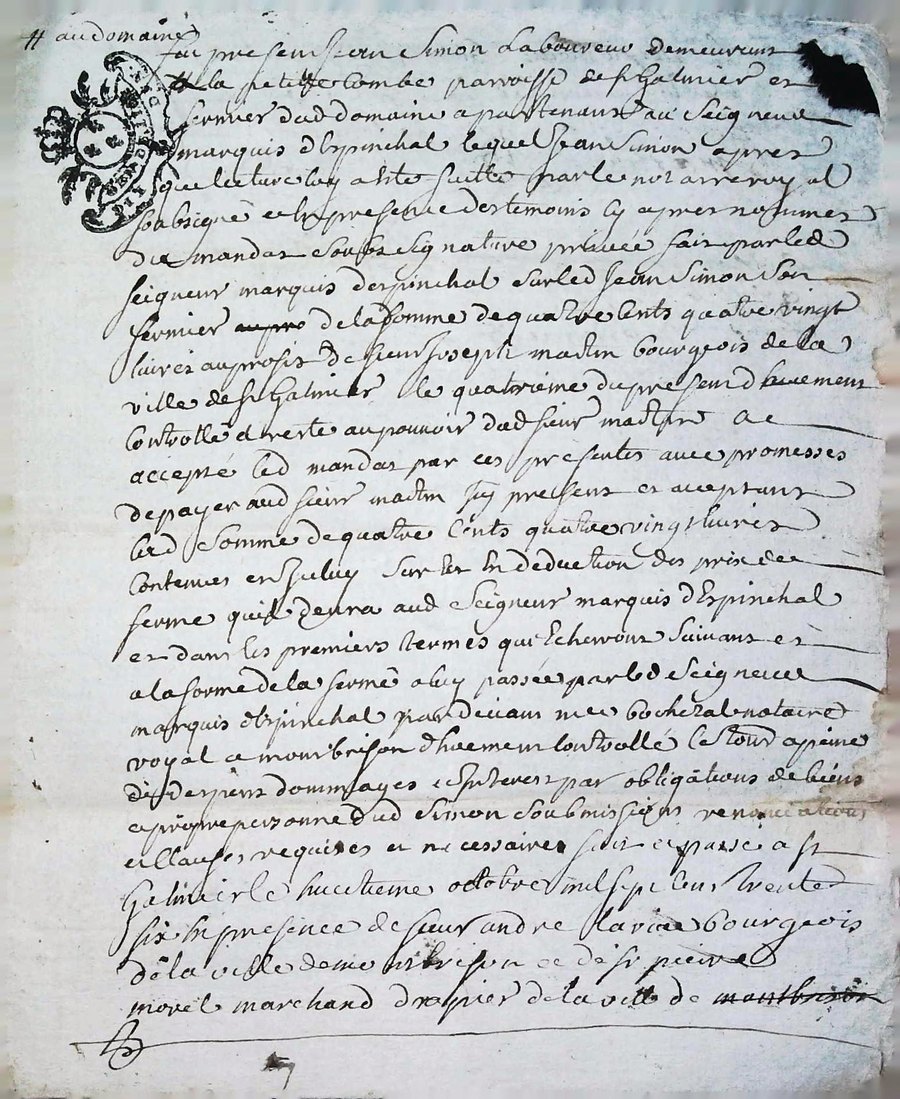 # au domaine
fut presens Jean Simon Laboureur demeurant
# la petitte Combe parroisse de st Galmier et
fermier dud domaine apartenant au Seigneur
marquis d'Espinchal lequel Jean Simon apres
que lecture luy a été faitte par le notaire royal
soubsigné en presence des temoins cy apres nommes
du mandat soubs signature privée fait par led
seigneur marquis despinchal sur led Jean Simon Son
fermier de la somme de quatre Cents quatre vingt
livres au profit de sieur Joseph martin bourgeois de la
ville de st Galmier le quatrieme du present dhuement
Controllé et resté au pouvoir dud sieur martin a
accepté led mandat par ces presentes avec promesses
de payer aud sieur martin icy present et aceptant
lad somme de quatre Cents quatre vingt livres
Contenues en Iceluy sur et en deduction des prix de
ferme quil devra aud Seigneur marquis d'Espinchal
et dans les premiers termes qui Echerront suivant et
a la forme de la ferme a luy passée par led Seigneur
marquis d'Espinchal par devant me notaire
royal a montbrison dhuement Controllé le tout a peine
de despens dommages et Interest par obligations de biens
et propre personne dud Simon soubmissions renonciations
et Clauses requises et necessaires fait et passé a st
Galmier le huictieme octobre mil sept cens trente
six en presence de sieur andré bourgeois
de la ville de montbrison et de sr pierre
morel marchand drapier de la ville de montbrison